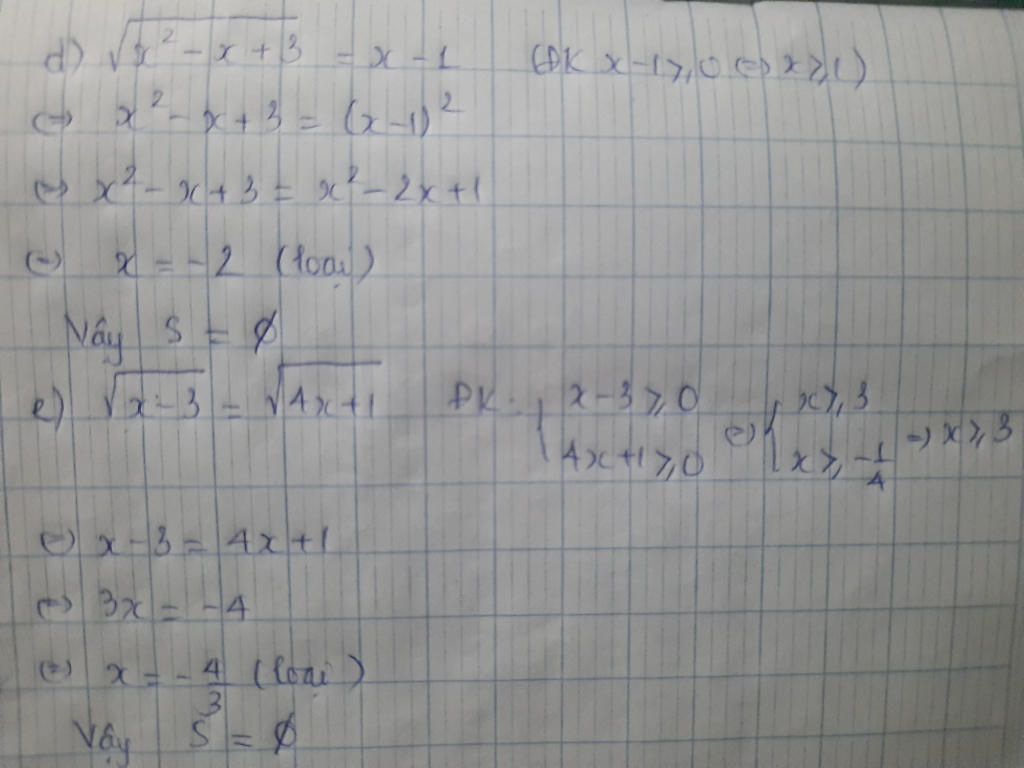 d) √(x² - x + 3) = x - 1 (ĐK x - 1 ≥ 0 ⇔ x ≥ 1)
⇔ x² - x + 3 = (x - 1)²
⇔ x² - x + 3 = x² - 2x + 1
⇔ x = -2 (loại)
Vậy S = ∅
e) √(x - 3) = √(4x + 1) ĐK: { x - 3 ≥ 0 ; 4x + 1 ≥ 0 ⇔ { x ≥ 3 ; x ≥ -1/4 ⇒ x ≥ 3
⇔ x - 3 = 4x + 1
⇔ 3x = -4
⇔ x = -4/3 (loại)
Vậy S = ∅